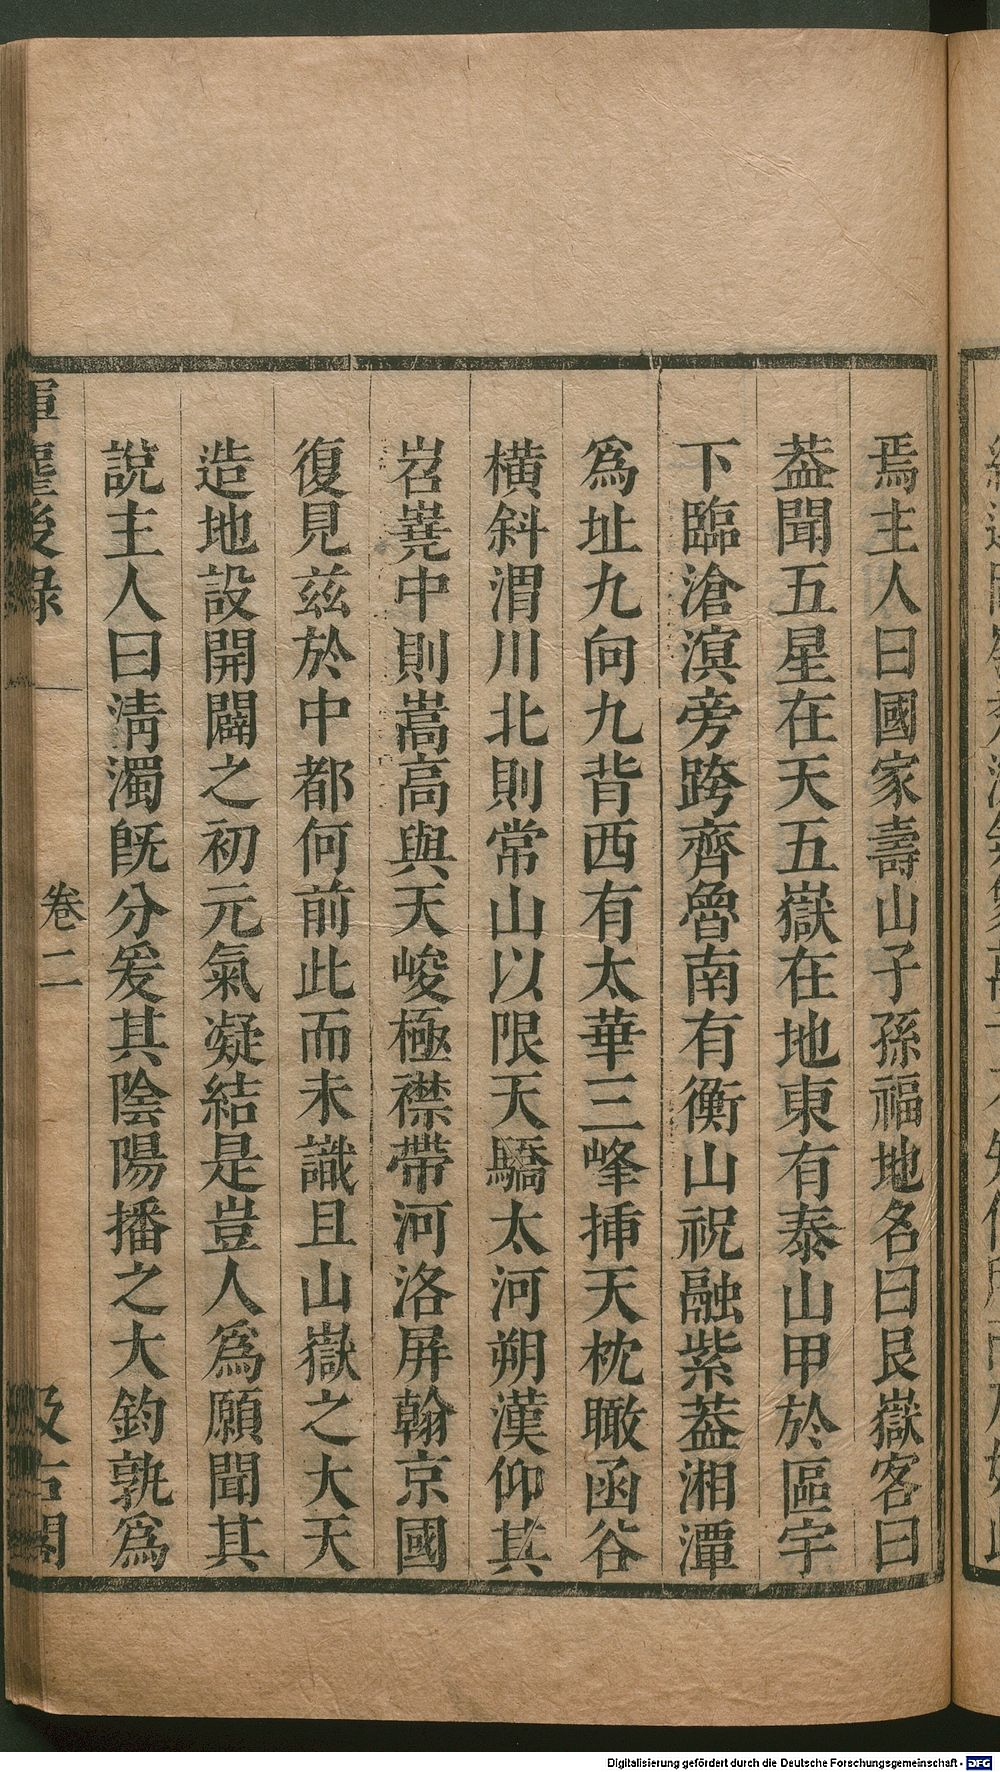 焉主人曰國家壽山子孫福地名曰艮嶽客曰
葢聞五星在天五嶽在地東有泰山甲於區宇
下臨滄溟旁跨齊魯南有衡山祝融紫葢湘潭
爲址九向九背西有太華三峰揷天枕瞰函谷
橫斜渭川北則常山以限天驕太河朔漢仰其
岧嶤中則嵩高與天峻極襟帶河洛屏翰京國
復見茲於中都何前此而未識且山嶽之大天
造地設開闢之初元氣凝結是豈人爲願聞其
說主人曰清濁旣分爰其陰陽播之大鈞孰爲
揮麈後錄
卷二
汲古閣
Digitalisierung gefördert durch die Deutsche Forschungsgemeinschaft - DFG